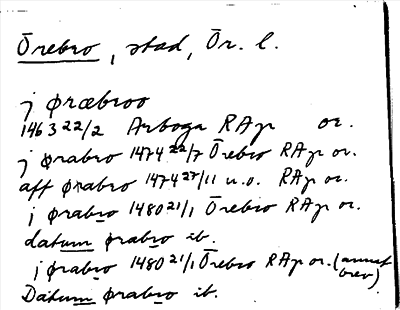 Örebro, stad, Ör. l.
j øræbroo
1463 22/2 Arboga RAp or.
j ørabro 1474 22/7 Örebro RAp or.
aff ørabro 1474 27/11 u.o. RAp or.
j ørabro 1480 21/1 Örebro RAp or.
datum ørabro ib.
j ørabro 1480 21/1 Örebro RAp or. (annat brev)
Datum ørabro ib.